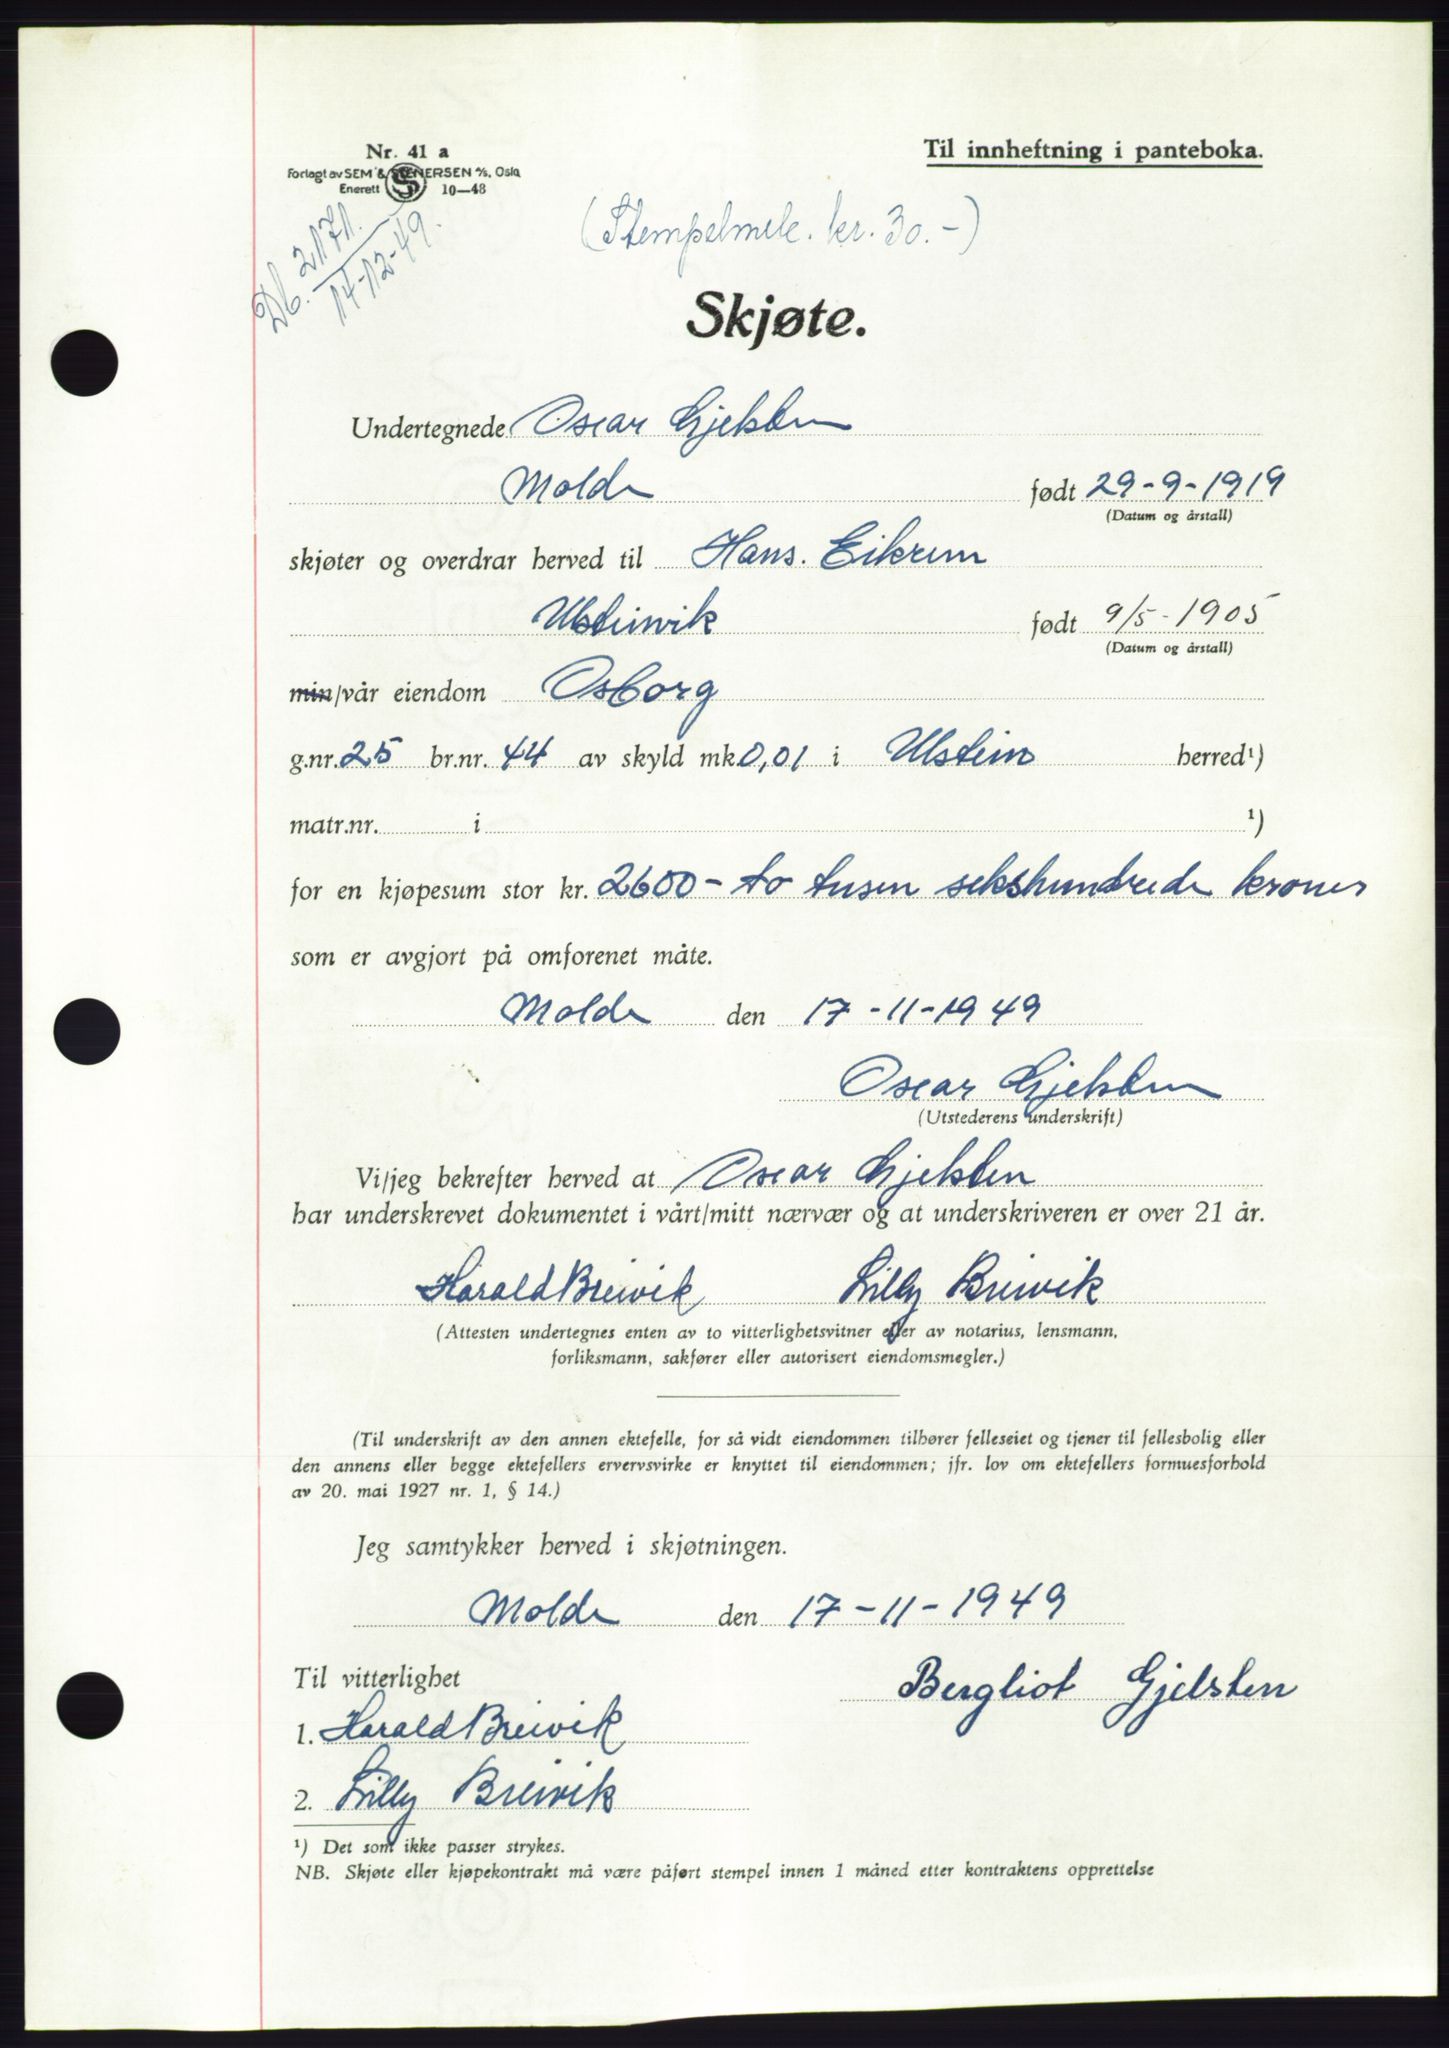 Nr. 41 a
Til innheftning i panteboka.
Forlagt av SEM & STENERSEN A/S, Oslo
Enerett 10—48
Db. 2171.
14-12-49.
(Stempelmrk. kr. 30.-)
Skjøte.
Undertegnede Oscar Gjelsten
Molde født 29-9-1919
(Datum og årstall)
skjøter og overdrar herved til Hans. Eikrem
Ulsteinvik født 9/5-1905
(Datum og årstall)
min/vår eiendom Osborg
g.nr. 25 br.nr. 44 av skyld mk. 0,01 i Ulstein herred¹)
matr.nr. i ¹)
for en kjøpesum stor kr. 2600- to tusen sekshundrede kroner
som er avgjort på omforenet måte.
Molde den 17-11-1949
Oscar Gjelsten
(Utstederens underskrift)
Vi/jeg bekrefter herved at Oscar Gjelsten
har underskrevet dokumentet i vårt/mitt nærvær og at underskriveren er over 21 år.
Harald Breivik Lilly Breivik
(Attesten undertegnes enten av to vitterlighetsvitner eller av notarius, lensmann,
forliksmann, sakfører eller autorisert eiendomsmegler.)
(Til underskrift av den annen ektefelle, for så vidt eiendommen tilhører felleseiet og tjener til fellesbolig eller
den annens eller begge ektefellers ervervsvirke er knyttet til eiendommen; jfr. lov om ektefellers formuesforhold
av 20. mai 1927 nr. 1, § 14.)
Jeg samtykker herved i skjøtningen.
Molde den 17-11-1949
Til vitterlighet
Bergliot Gjelsten
1. Harald Breivik
2. Lilly Breivik
¹) Det som ikke passer strykes.
NB. Skjøte eller kjøpekontrakt må være påført stempel innen 1 måned etter kontraktens opprettelse